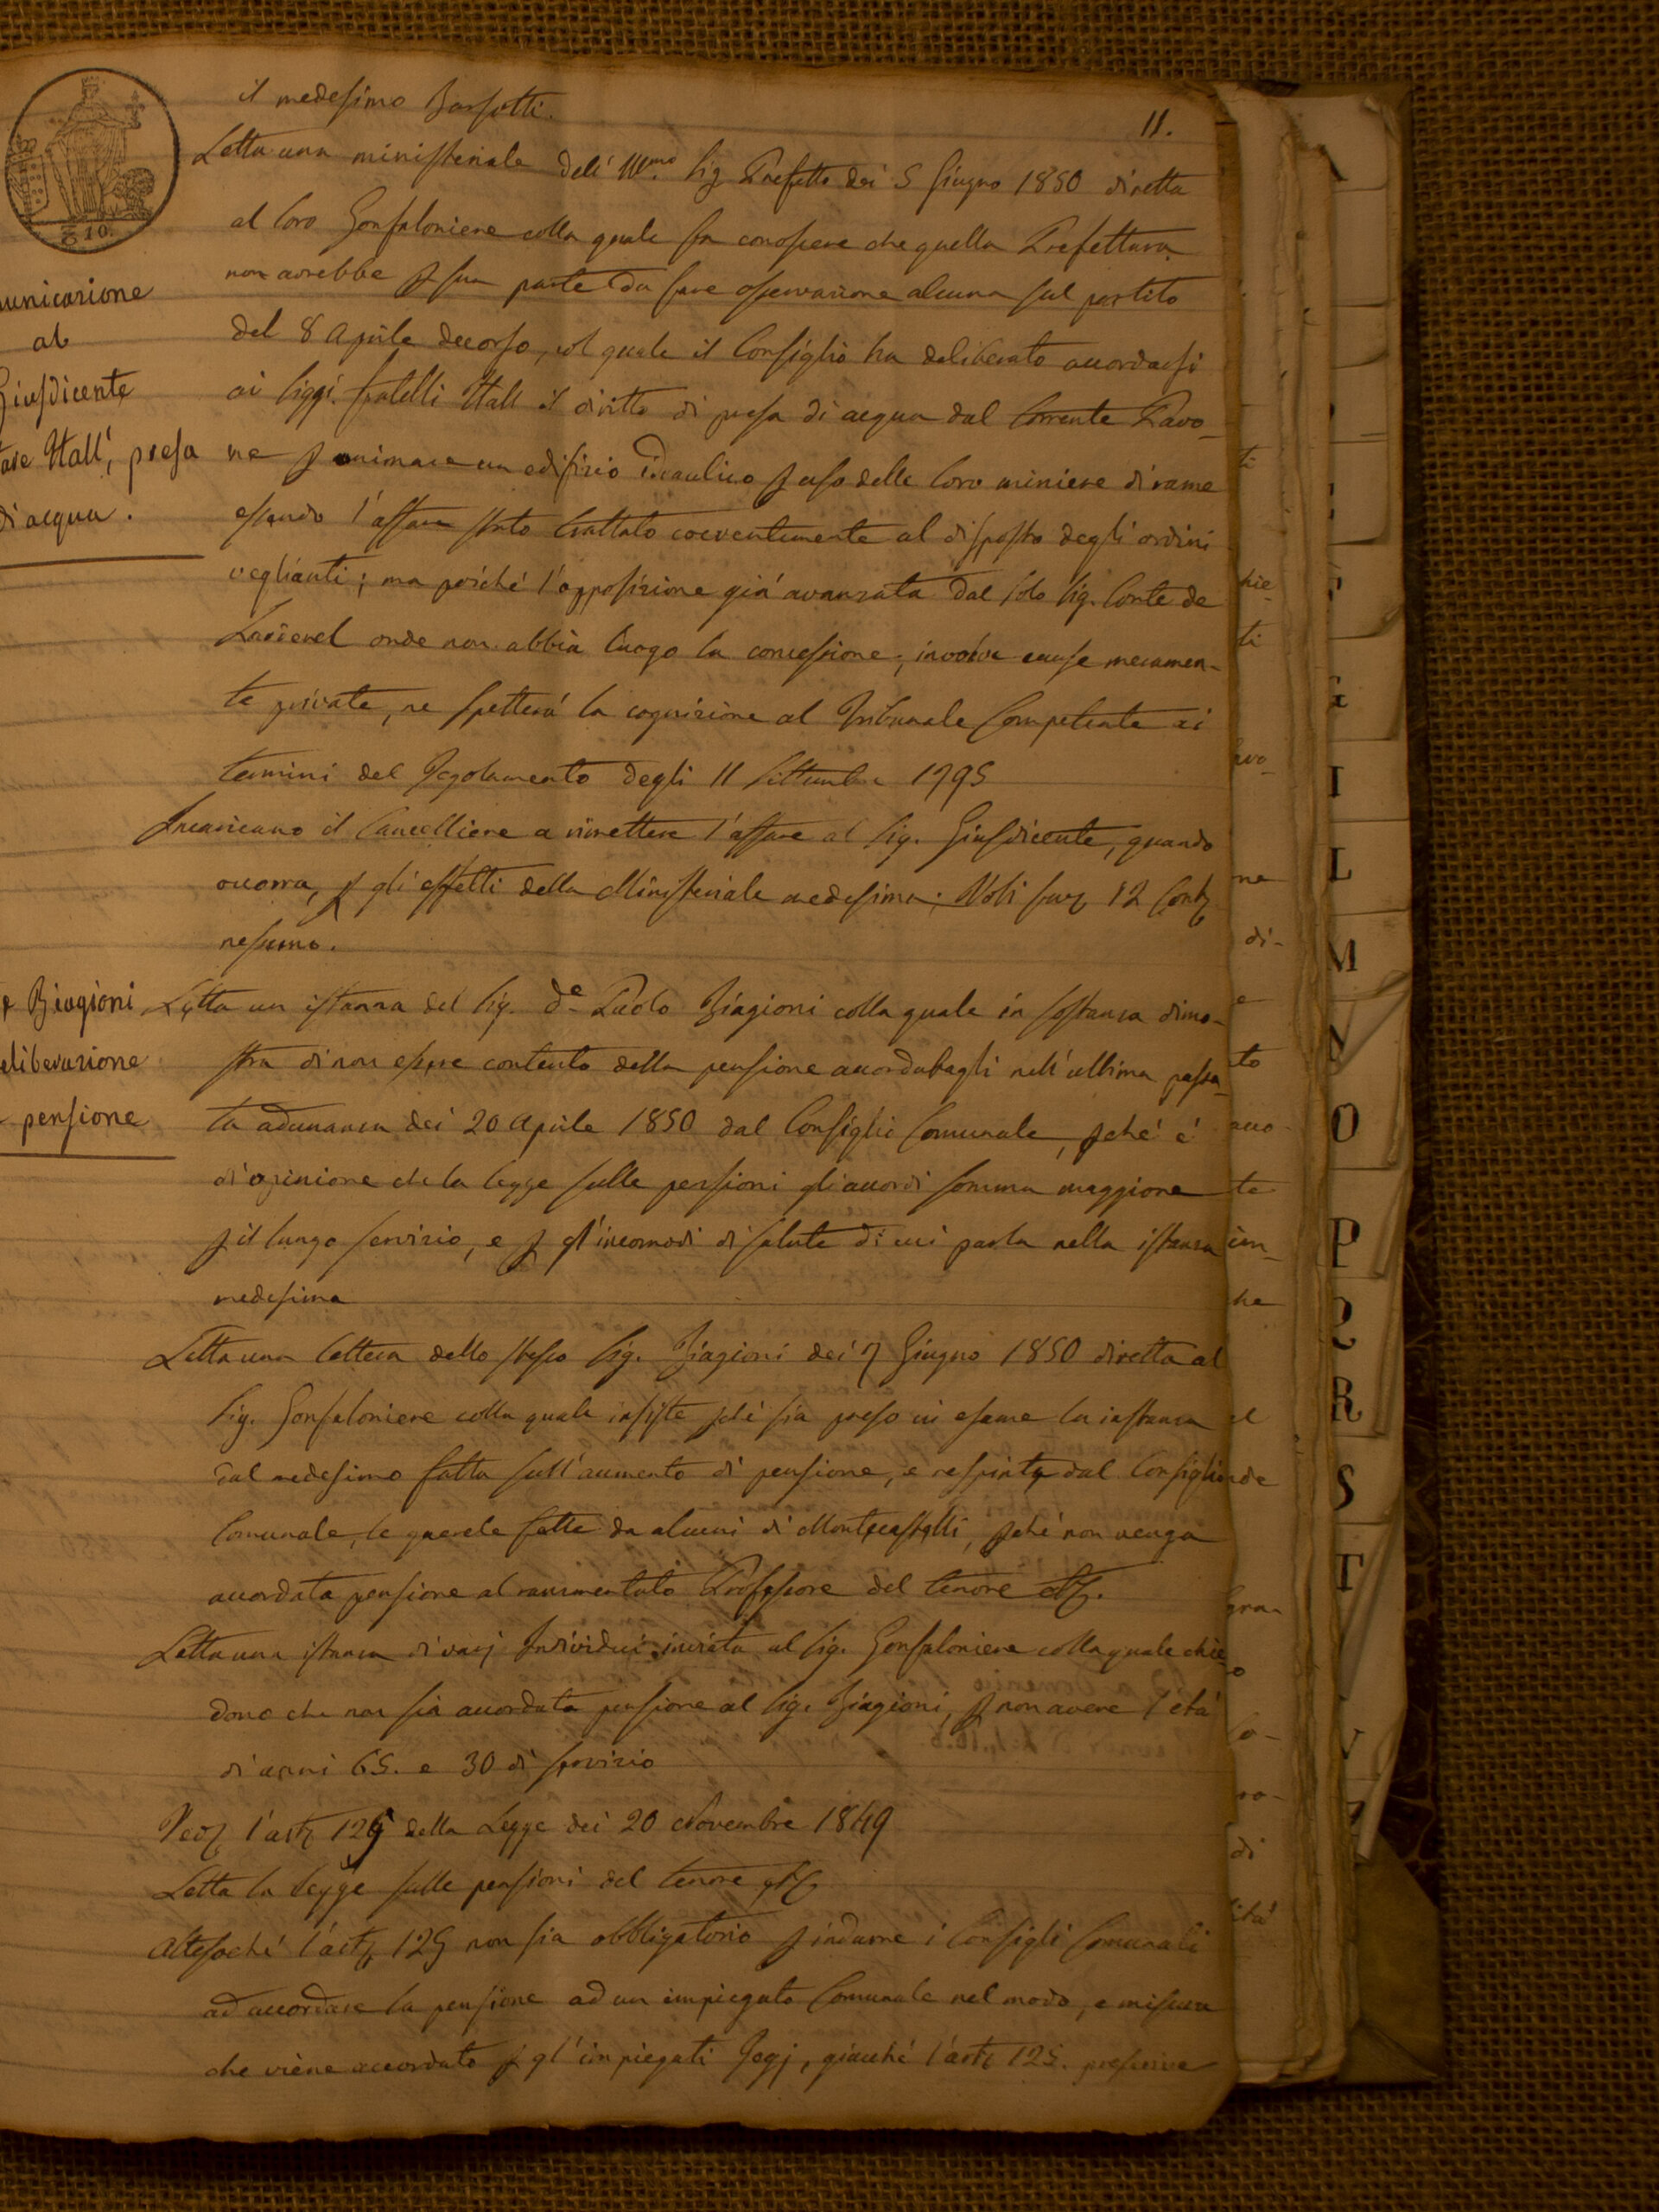 11.
10.
il medesimo Barsotti.
Letta una ministeriale dell' Ill.mo Sig Prefetto dei 5 Giugno 1850 diretta
al loro Gonfaloniere colla quale fa conoscere che quella Prefettura
non avrebbe p sua parte da fare osservazione alcuna sul partito
del 8 Aprile decorso, col quale il Consiglio ha deliberato accordarsi
ai Siggi. fratelli Hall il diritto di presa di acqua dal torrente Pavo-
ne p animare un edifizio idraulico p uso delle loro miniere di rame
essendo l'affare stato trattato coerentemente al disposto degli ordini
veglianti; ma poiché l'opposizione già avanzata dal solo Sig. Conte de
Larderel onde non abbia luogo la concessione, involve cause meramen-
te private, ne spetterá la cognizione al Tribunale Competente ai
termini del Regolamento degli 11 Settembre 1795
Incaricano il Cancelliere a rimettere l'affare al Sig. Giusdicente, quando
occorra, p gli effetti della Ministeriale medesima. Voti fav 12 Cont
nessuno.
Letta un istanza del Sig. De Paolo Biagioni colla quale in sostanza dimo-
stra di non essere contento della pensione accordatagli nell'ultima passa-
ta adunanza dei 20 Aprile 1850 dal Consiglio Comunale, pché é
di opinione che la legge sulle pensioni gli accordi somma maggiore
p il lungo servizio, e p gl'incomodi di salute di cui parla nella istanza
medesima
Letta una lettera dello stesso Sig. Biagioni dei 7 Giugno 1850 diretta al
Sig. Gonfaloniere colla quale insiste pché sia preso in esame la instanza
dal medesimo fatta sull'aumento di pensione, e respinte dal Consiglio
Comunale, le querele fatte da alcuni di Montecastelli, pché non venga
accordata pensione al rammentato Professore del tenore
Letta una istanza di varj Individui inviata al Sig. Gonfaloniere colla quale chie
dono che non sia accordata pensione al Sig. Biagioni, p non avere l'etá
di anni 65. e 30 di servizio
Ved l'art 125 della Legge dei 20 Novembre 1849
Letta la legge sulle pensioni del tenore
Attesoché l'art 125 non sia obbligatorio p indurre i Consigli Comunali
ad accordare la pensione ad un impiegato Comunale nel modo, e misura
che viene accordato p gl'impiegati Regj, giacché l'art 125. prescrive
unicazione
al
Giusdicente
Hall, presa
di acqua.
Biagioni
eliberazione
pensione
I
L
M
N
O
P
Q
R
S
T
V